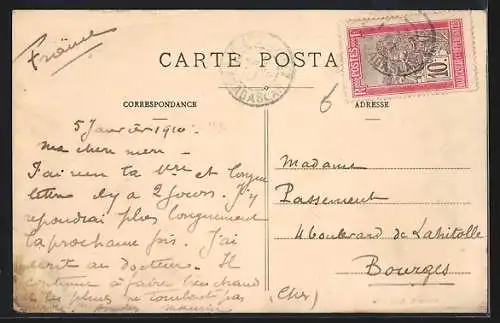 France
CARTE POSTA
CORRESPONDANCE
ADRESSE
POSTES
10
6
5 Janvier 1910.
Ma chère mère -
J'ai reçu ta et longue
lettre il y a 2 jours. J'y
repondrai plus longuement
la prochaine fois. J'ai
écrit au docteur. Il
continue à faire très chaud
les pluies ne tombent pas
Maurice
Madame
Passement
4 boulevard de Lahitolle
Bourges
(Cher)